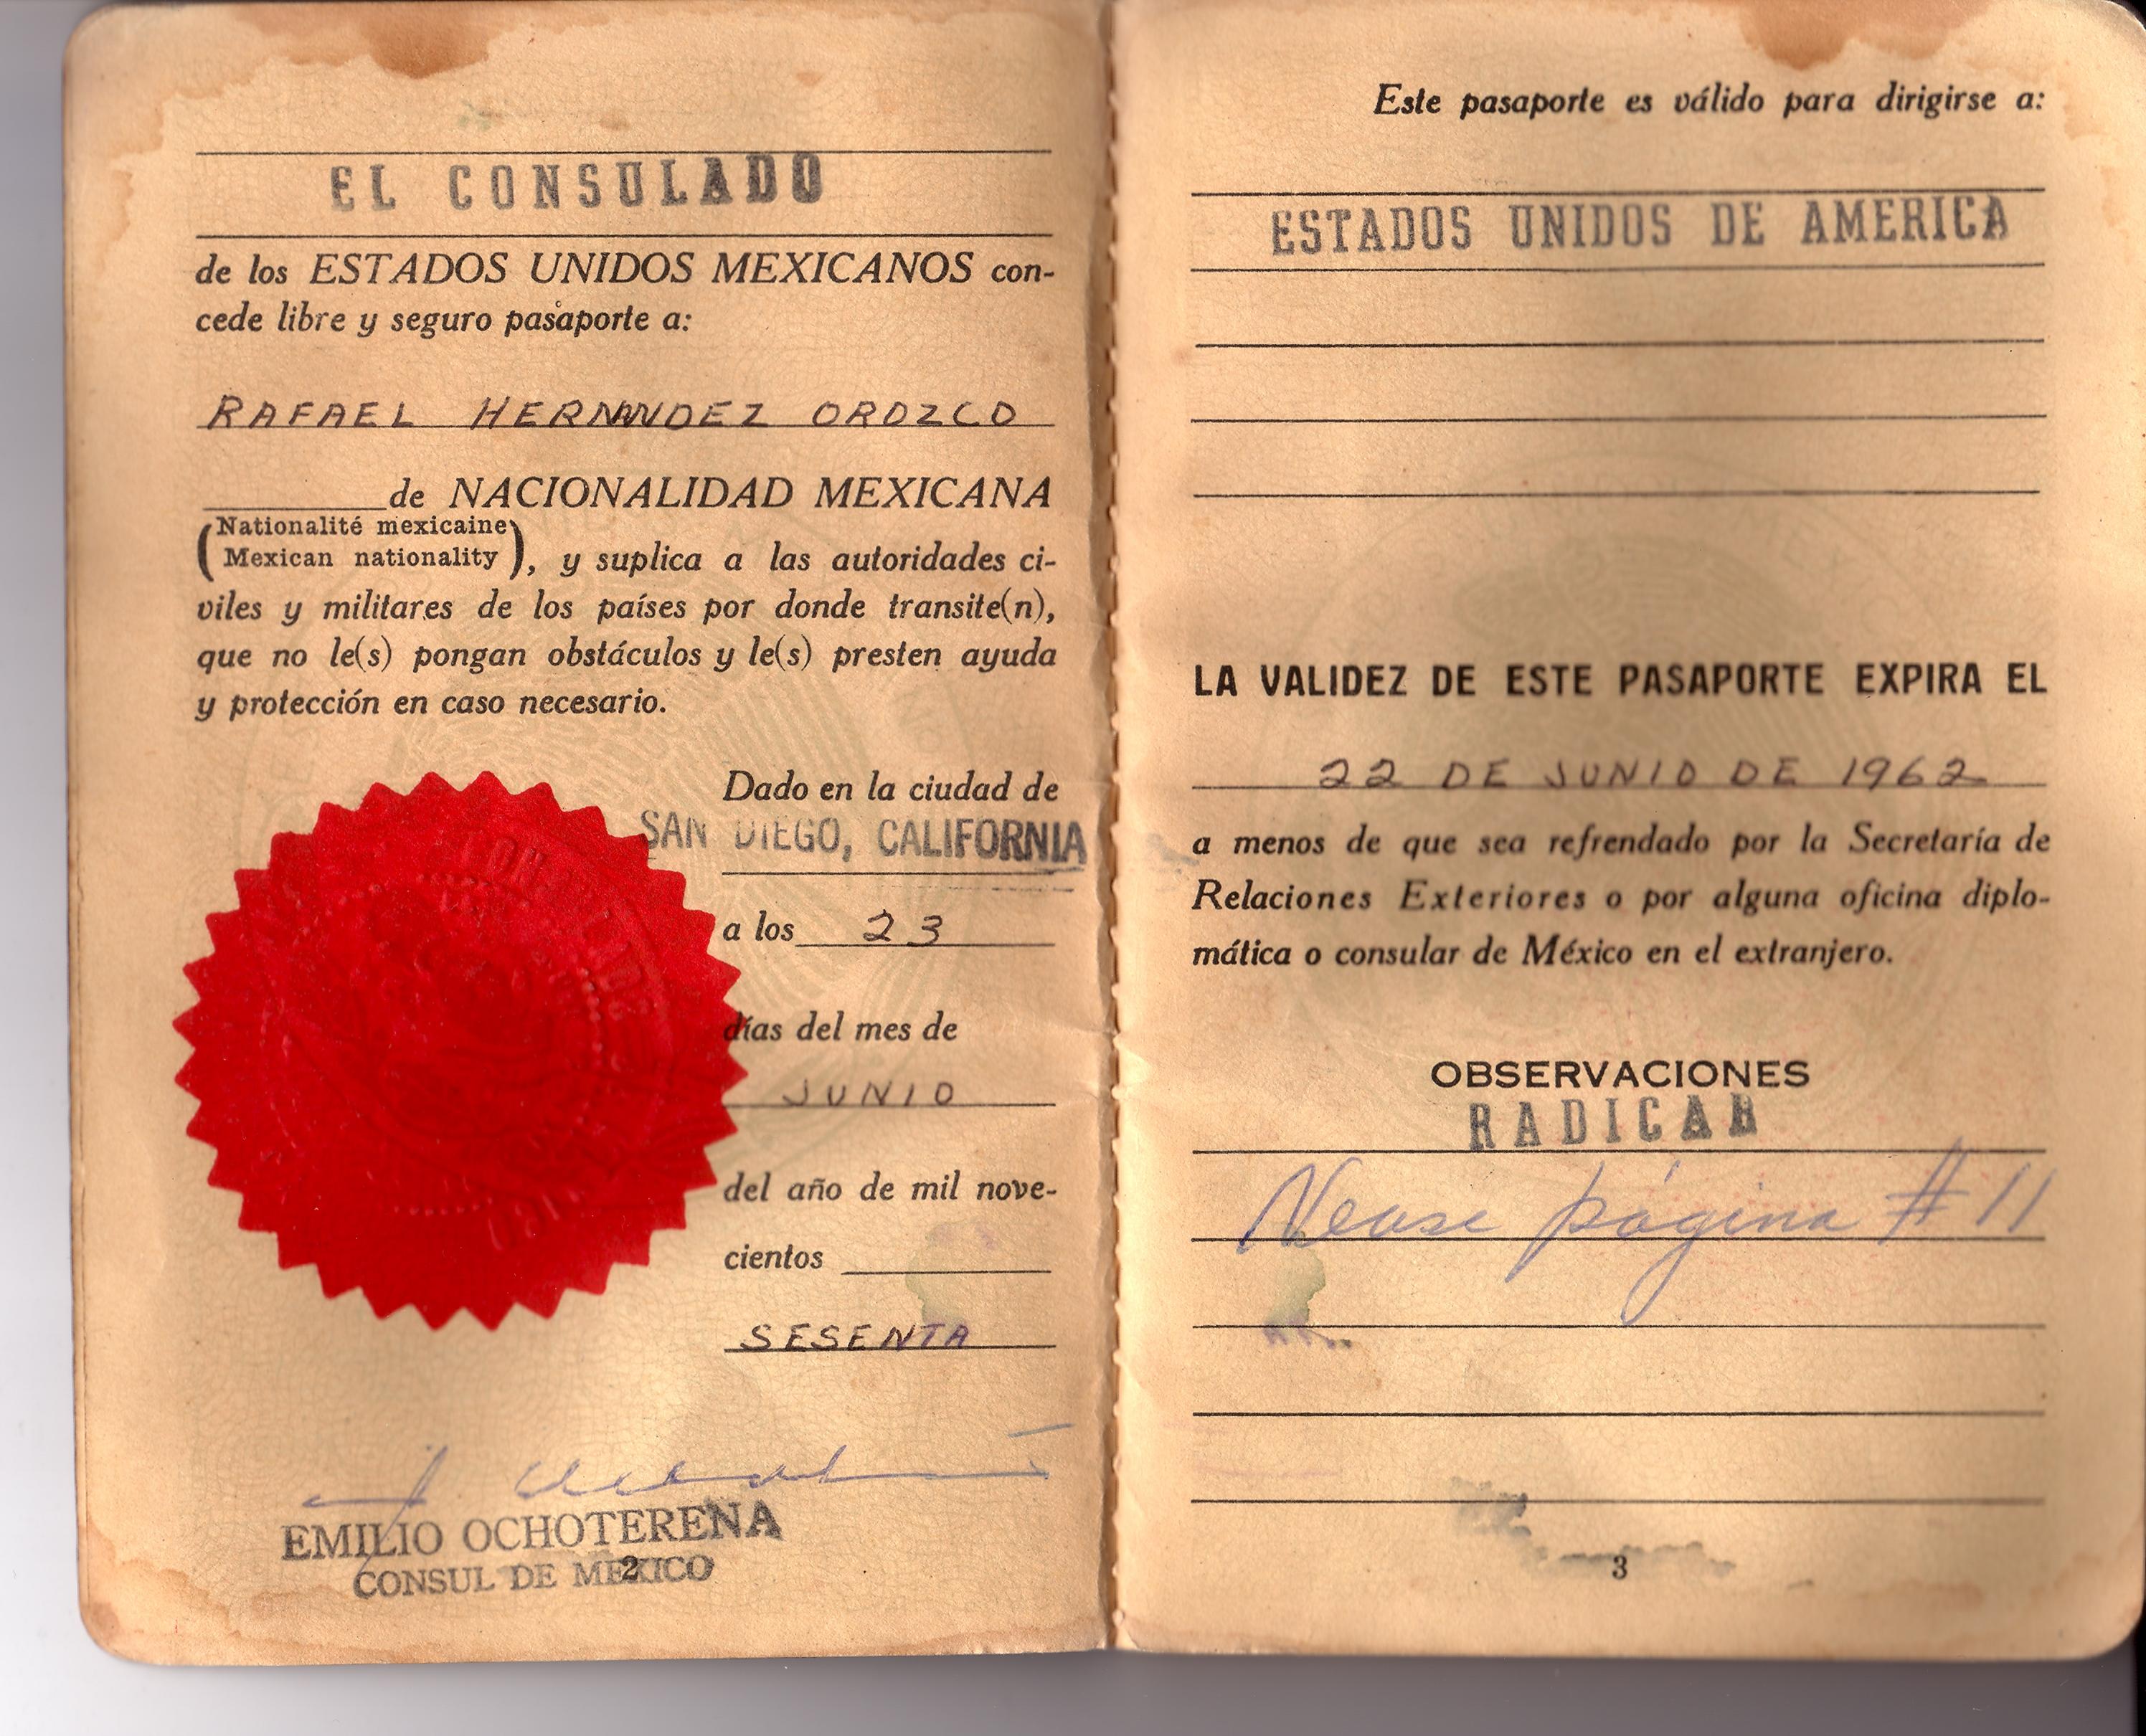 EL CONSULADO
de los ESTADOS UNIDOS MEXICANOS con-
cede libre y seguro pasaporte a:
RAFAEL HERNANDEZ OROZCO
de NACIONALIDAD MEXICANA
(Nationalité mexicaine
Mexican nationality), y suplica a las autoridades ci-
viles y militares de los países por donde transite(n),
que no le(s) pongan obstáculos y le(s) presten ayuda
y protección en caso necesario.
Dado en la ciudad de
SAN DIEGO, CALIFORNIA
a los 23
días del mes de
JUNIO
del año de mil nove-
cientos
SESENTA
EMILIO OCHOTERENA
CONSUL DE MEXICO
2
Este pasaporte es válido para dirigirse a:
ESTADOS UNIDOS DE AMERICA
LA VALIDEZ DE ESTE PASAPORTE EXPIRA EL
22 DE JUNIO DE 1962
a menos de que sea refrendado por la Secretaría de
Relaciones Exteriores o por alguna oficina diplo-
mática o consular de México en el extranjero.
OBSERVACIONES
RADICAR
Vease página # 11
3